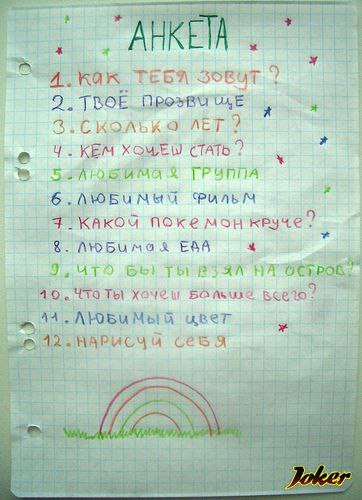 АНКЕТА
1. КАК ТЕБЯ ЗОВУТ?
2. ТВОЁ ПРОЗВИЩЕ
3. СКОЛЬКО ЛЕТ?
4. КЕМ ХОЧЕШ СТАТЬ?
5. ЛЮБИМАЯ ГРУППА
6. ЛЮБИМЫЙ ФИЛЬМ
7. КАКОЙ ПОКЕМОН КРУЧЕ?
8. ЛЮБИМАЯ ЕДА
9. ЧТО БЫ ТЫ ВЗЯЛ НА ОСТРОВ?
10. ЧТО ТЫ ХОЧЕШ БОЛЬШЕ ВСЕГО?
11. ЛЮБИМЫЙ ЦВЕТ
12. НАРИСУЙ СЕБЯ
Joker